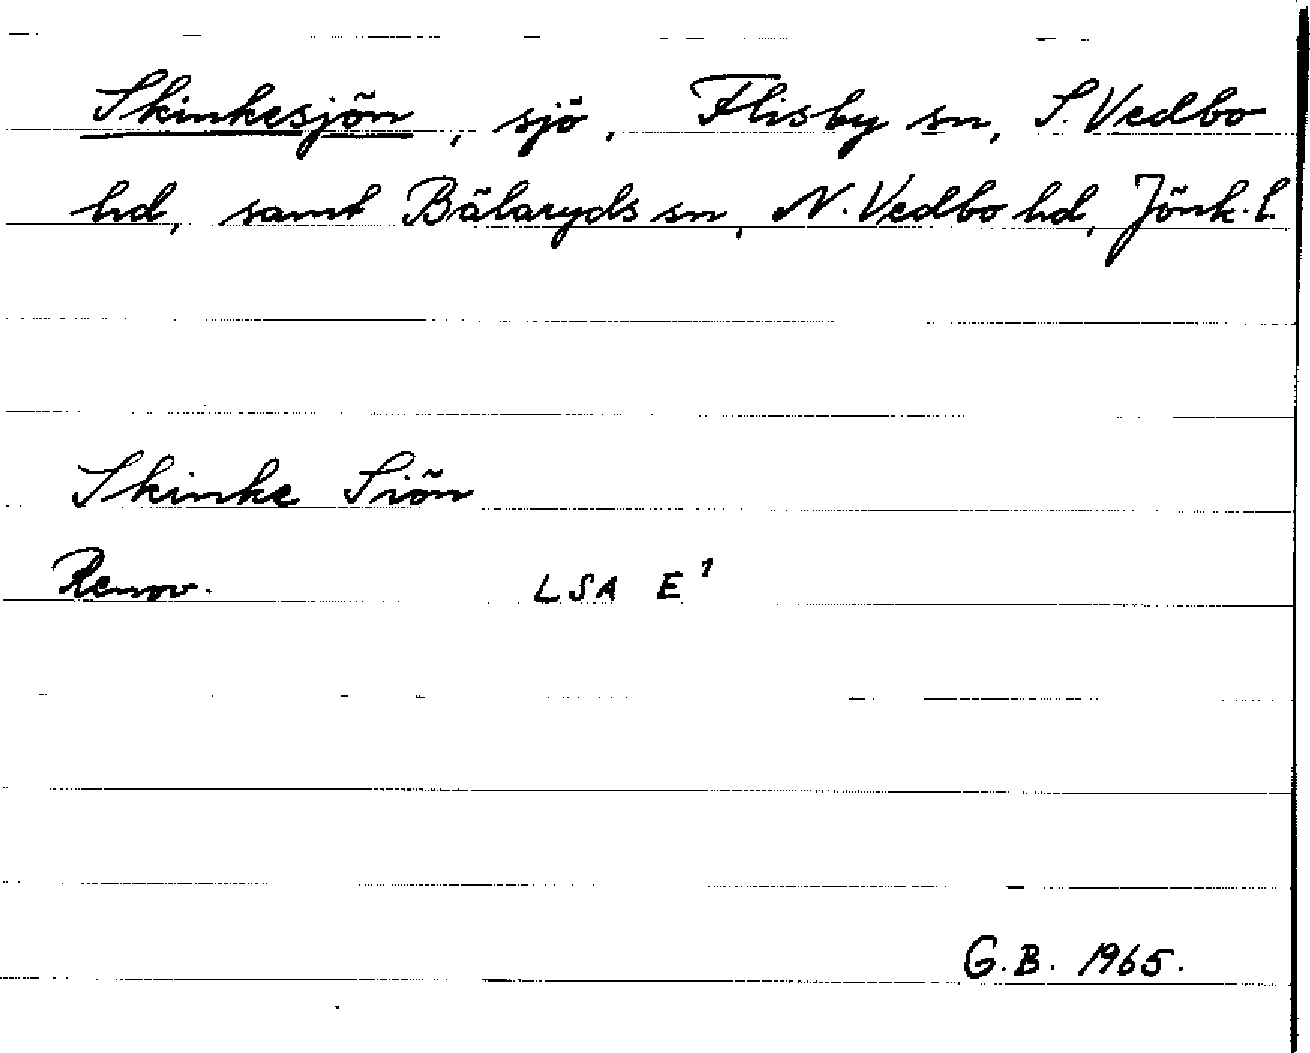 Skinkesjön, sjö, Flisby sn, S. Vedbo
hd, samt Bälaryds sn, N. Vedbo hd, Jönk. l.
Skinke Siön
Renov. LSA E¹
G.B. 1965.